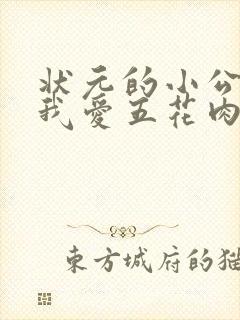 状元的小公
我爱五花肉
东方城府的猫